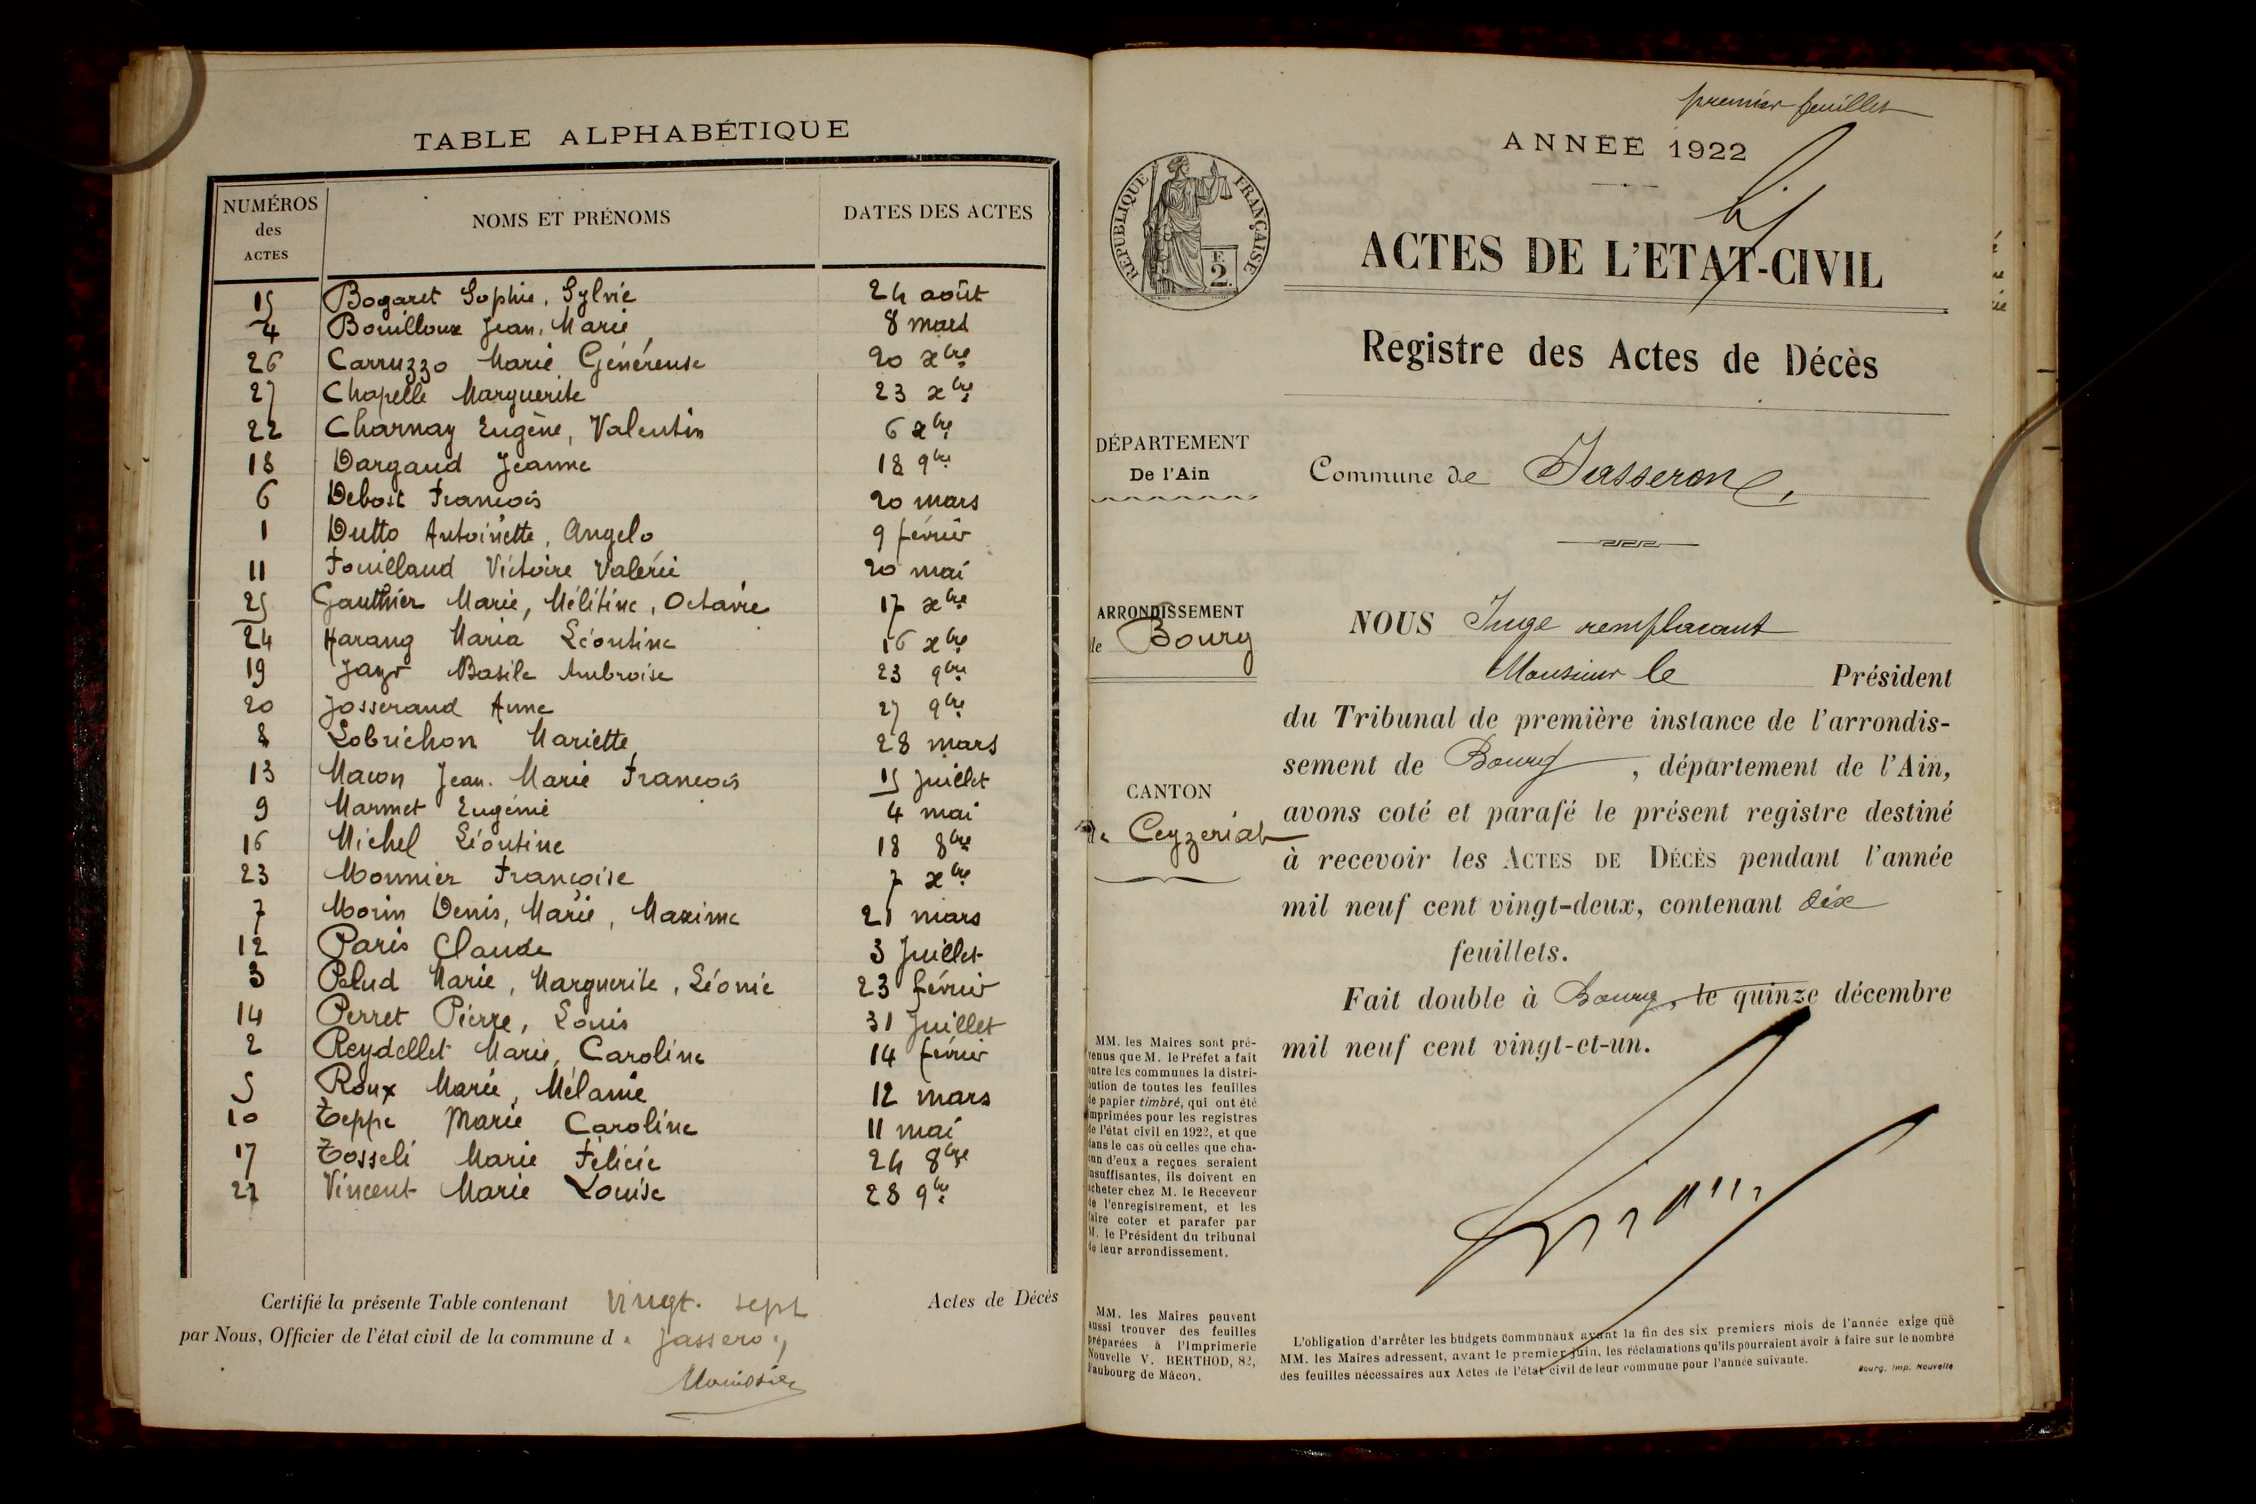 TABLE ALPHABÉTIQUE
NUMÉROS des ACTES NOMS ET PRÉNOMS DATES DES ACTES
15 Bogaret Sophie, Sylvie 24 août
4 Bouilloux Jean, Marie 8 mars
26 Carruzzo Marie Généreuse 20 xbre
27 Chapelle Marguerite 23 xbre
22 Charnay Eugène, Valentin 6 xbre
18 Dargaud Jeanne 18 9bre
6 Debost François 20 mars
1 Dutto Antoinette, Angelo 9 février
11 Fouilland Victoire Valérie 20 mai
25 Gauthier Marie, Mélitine, Octavie 17 xbre
24 Harang Maria Léontine 16 xbre
19 Jayr Basile Ambroise 23 9bre
20 Josserand Anne 27 9bre
8 Lobrichon Mariette 28 mars
13 Macon Jean. Marie François 15 Juillet
9 Marmet Eugénie 4 mai
16 Michel Léontine 18 8bre
23 Monnier Françoise 7 xbre
7 Morin Denis, Marie, Maxime 21 mars
12 Paris Claude 3 Juillet
3 Pelud Marie, Marguerite, Léonie 23 février
14 Perret Pierre, Louis 31 Juillet
2 Reydellet Marie, Caroline 14 février
5 Roux Marie, Mélanie 12 mars
10 Teppe Marie Caroline 11 mai
17 Tosseli Marie Félicie 24 8bre
Vincent Marie Louise 28 9bre
Certifié la présente Table contenant vingt. sept Actes de Décès
par Nous, Officier de l'état civil de la commune d
premier feuillet
ANNÉE 1922
RÉPUBLIQUE FRANÇAISE
F.
2.
ACTES DE L'ETAT-CIVIL
Registre des Actes de Décès
DÉPARTEMENT
De l'Ain
Commune de Jasseron
ARRONDISSEMENT
de Bourg
CANTON
de Ceyzeriat
NOUS Juge remplacant
Monsieur le Président
du Tribunal de première instance de l'arrondis-
sement de Bourg, département de l'Ain,
avons coté et parafé le présent registre destiné
à recevoir les ACTES DE DÉCÈS pendant l'année
mil neuf cent vingt-deux, contenant dix
feuillets.
Fait double à Bourg, le quinze décembre
mil neuf cent vingt-et-un.
MM. les Maires sont pré-
venus que M. le Préfet a fait
entre les communes la distri-
bution de toutes les feuilles
de papier timbré, qui ont été
imprimées pour les registres
de l'état civil en 1922, et que
dans le cas où celles que cha-
cun d'eux a reçues seraient
insuffisantes, ils doivent en
acheter chez M. le Receveur
de l'enregistrement, et les
faire coter et parafer par
M. le Président du tribunal
de leur arrondissement.
MM. les Maires peuvent
aussi trouver des feuilles
préparées à l'Imprimerie
Nouvelle V. BERTHOD, 82,
Faubourg de Mâcon.
L'obligation d'arrêter les budgets communaux avant la fin des six premiers mois de l'année exige que
MM. les Maires adressent, avant le premier juin, les réclamations qu'ils pourraient avoir à faire sur le nombre
des feuilles nécessaires aux Actes de l'état civil de leur commune pour l'année suivante.
Bourg. Imp. Nouvelle